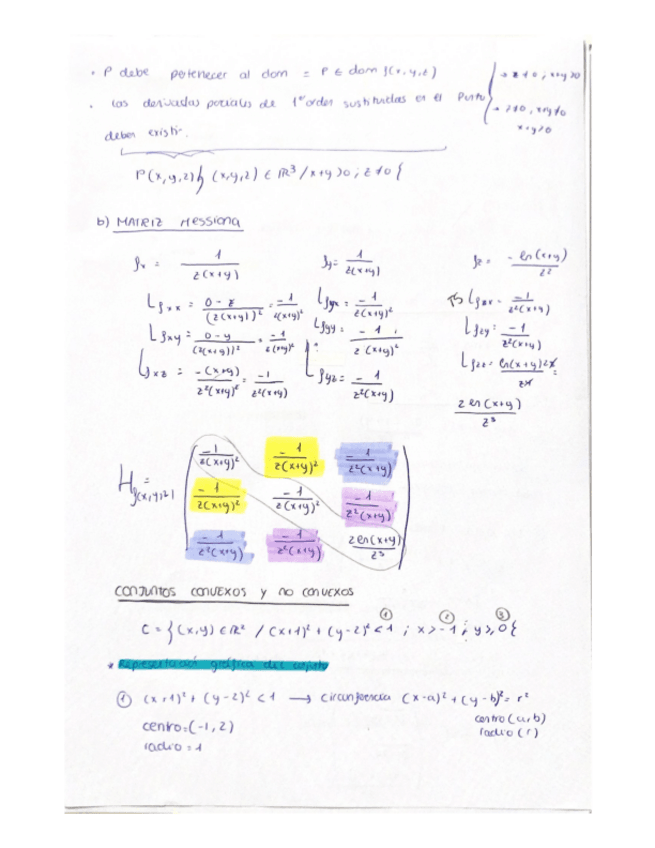 • P debe pertenecer al dom = P ∈ dom f(x,y,z) → z≠0 ; x+y>0
• Las derivadas parciales de 1er orden sustituidas en el Punto → z≠0, x+y≠0
deben existir. x+y>0
P(x,y,z) } (x,y,z) ∈ ℝ³ / x+y>0 ; z≠0 {
b) MATRIZ Hessiana
fx = 1 / z(x+y) fy = 1 / z(x+y) fz = -ln(x+y) / z²
fxx = 0-z / (z(x+y))² = -1 / z(x+y)² fyx = -1 / z(x+y)² fzx = -1 / z²(x+y)
fxy = 0-y / (z(x+y))² = -1 / z(x+y)² fyy = -1 / z(x+y)² fzy = -1 / z²(x+y)
fxz = -(x+y) / z²(x+y)² = -1 / z²(x+y) fyz = -1 / z²(x+y) fzz = ln(x+y)2z / z⁴ =
2 ln(x+y) / z³
Hf(x,y,z) =
-1 / z(x+y)² -1 / z(x+y)² -1 / z²(x+y)
-1 / z(x+y)² -1 / z(x+y)² -1 / z²(x+y)
-1 / z²(x+y) -1 / z²(x+y) 2 ln(x+y) / z³
CONJUNTOS CONVEXOS Y NO CONVEXOS
① ② ③
C = } (x,y) ∈ ℝ² / (x+1)² + (y-2)² < 1 ; x > -1 ; y ≥ 0 {
* Representació gráfica del conjunto
① (x+1)² + (y-2)² < 1 → circunferencia (x-a)² + (y-b)² = r²
centro = (-1, 2) centro (a,b)
radio = 1 radio (r)